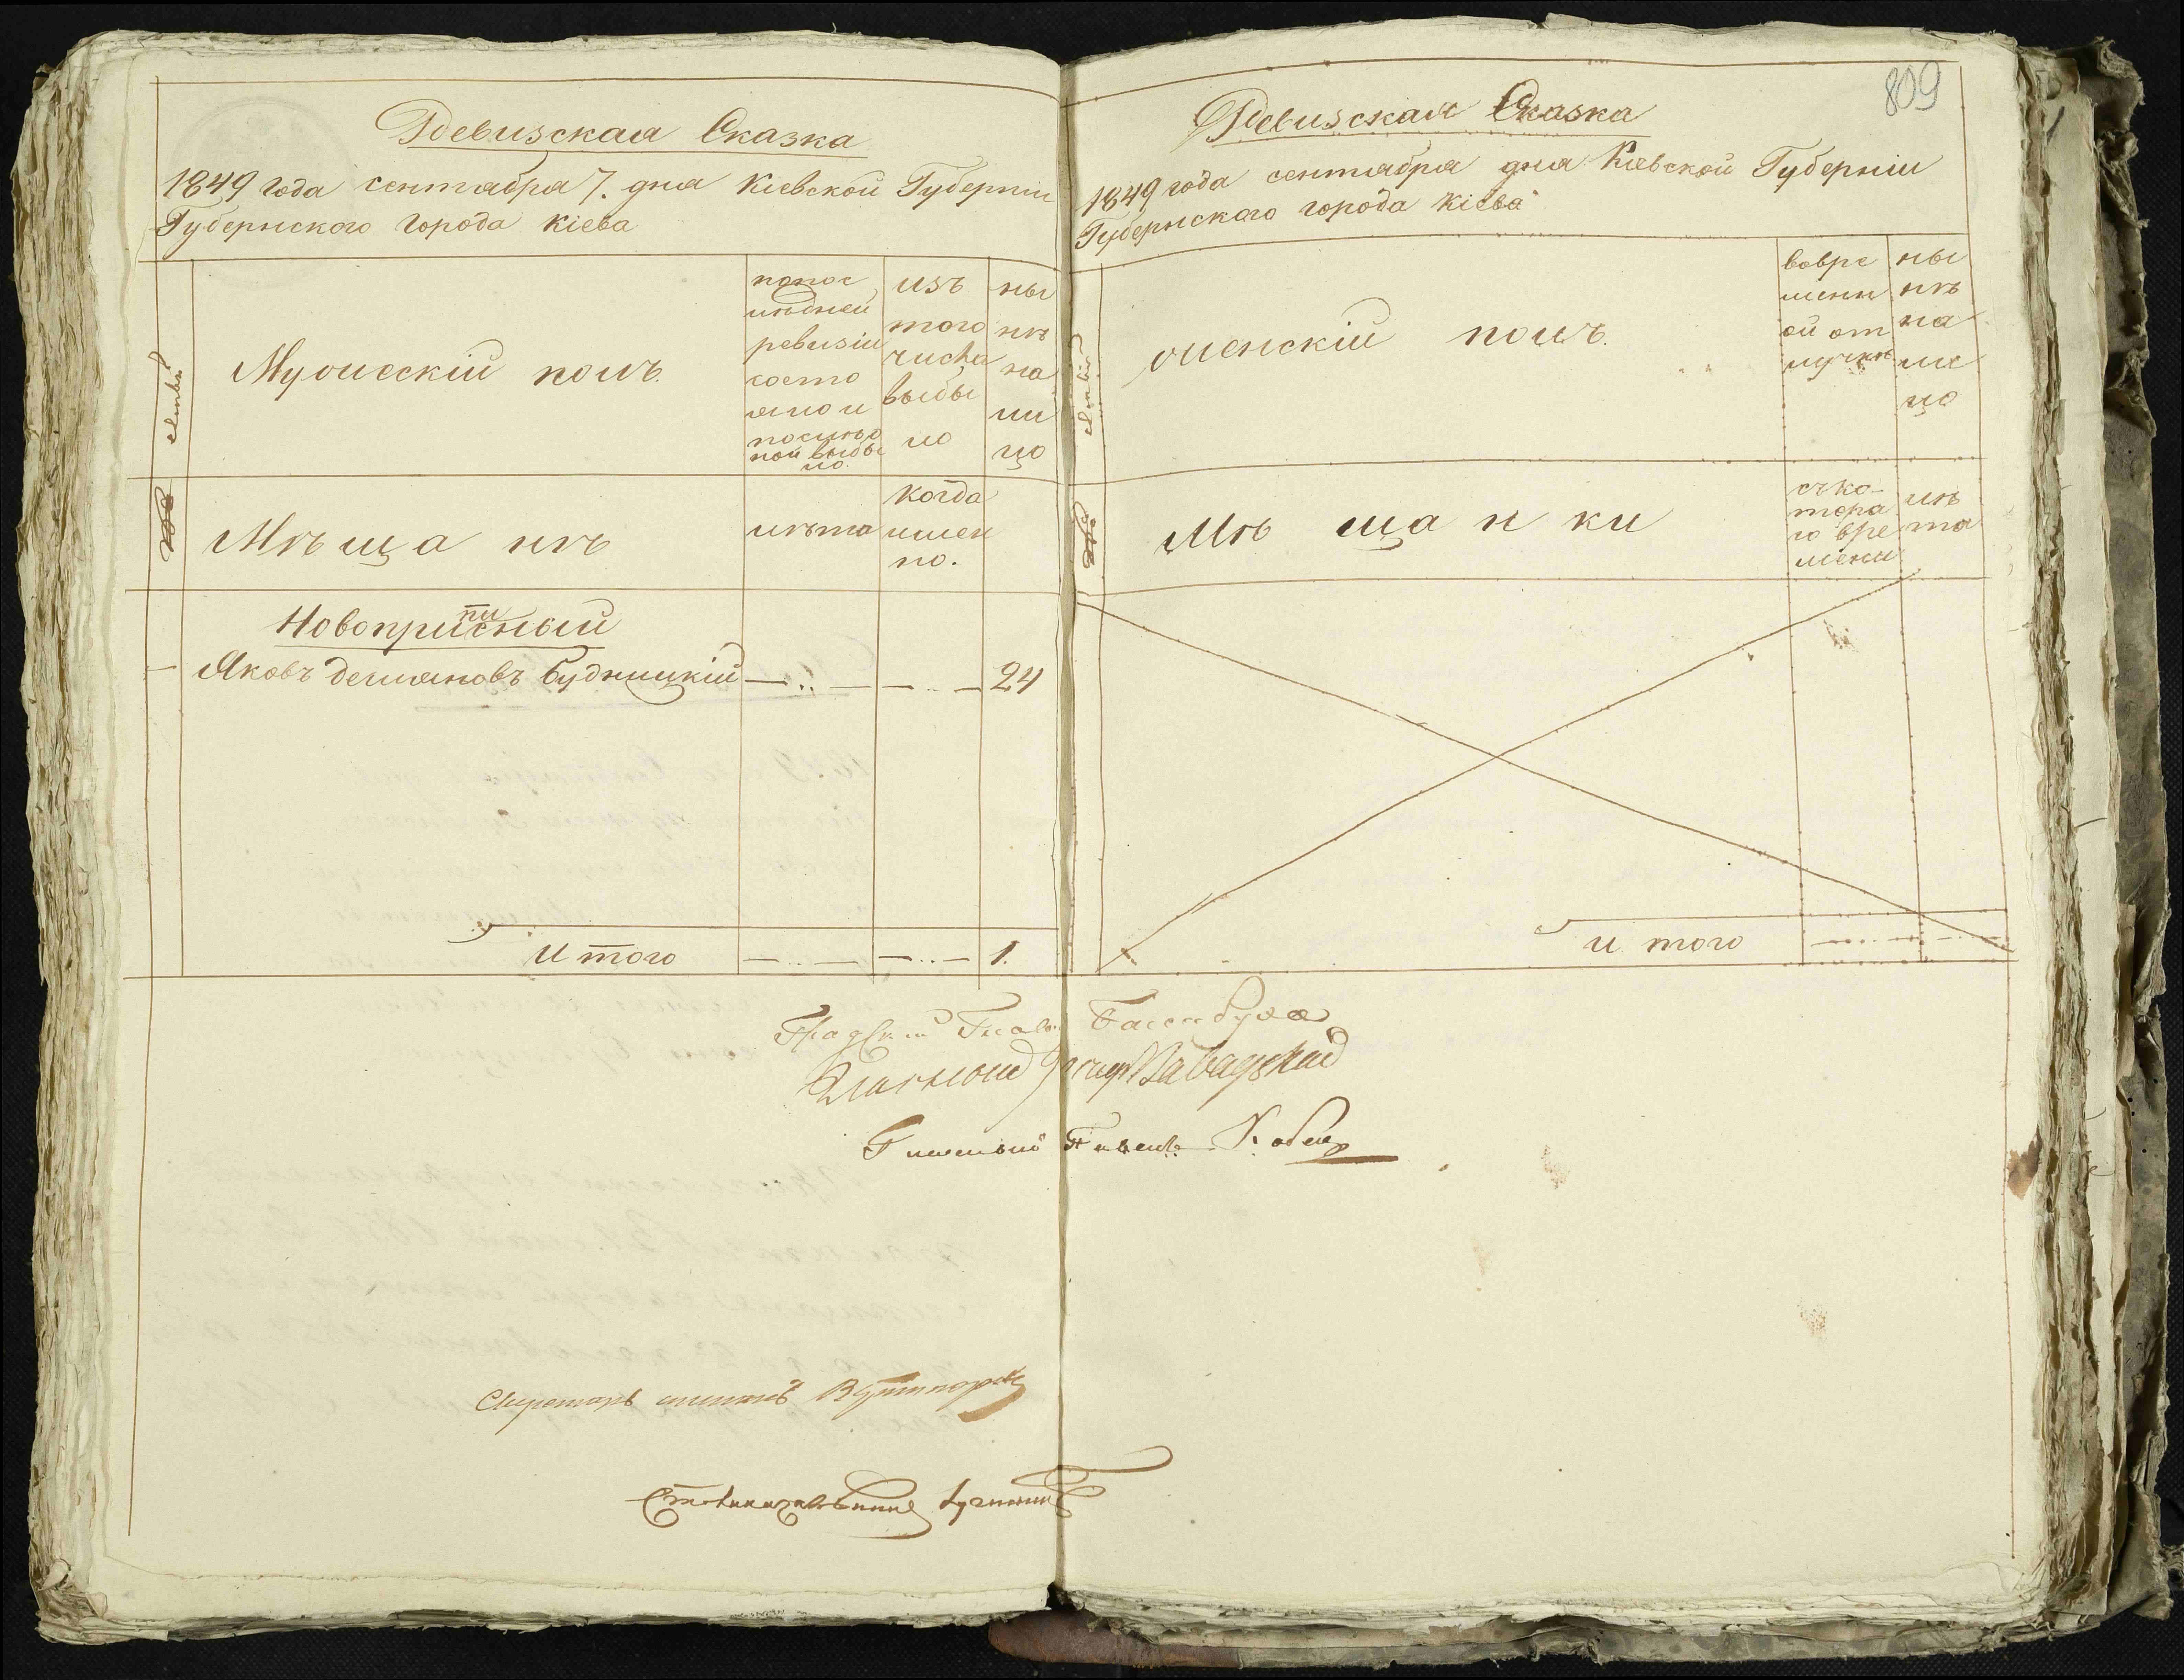 Ревизская Сказка
1849 года сентября 7. дня Киевской Губернии
Губернского города Кіева
Мужескій полъ.
по пос
лѣдней
ревизіи
состо
яло и
послѣ о
ной выбы
ло.
изъ
того
числа
выбы
ло
ны
нѣ
на
ли
цо
Мѣщанѣ
лѣта
когда
имен
но.
Новоприписный
Яковъ Демяновъ Будницкій — .. — — .. — 24
Итого — .. — — .. — 1.
809
Ревизская Сказка
1849 года сентября дня Киевской Губерніи
Губернского города Кіева
женскій полъ.
во вре
менн
ой от
лучкѣ
ны
нѣ
на
ли
цо
Мѣщанки
съ ко-
тора
го вре
мени
лѣ
та
Итого
Градскій Глава
Завадскій
Секретарь